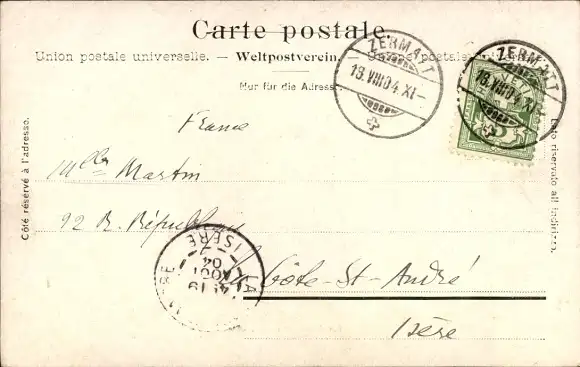 Carte postale.
Union postale universelle. — Weltpostverein. — 
Nur für die Adresse
ZERMATT
13.VIII04.XI–
ZERMATT
13.VIII04.XI–
Côté réservé à l'adresse.
Lato riservato all'indirizzo.
France
Mlle Martin
92 R. République
La Côte-St-André
Isère
ISERE
AOUT
04